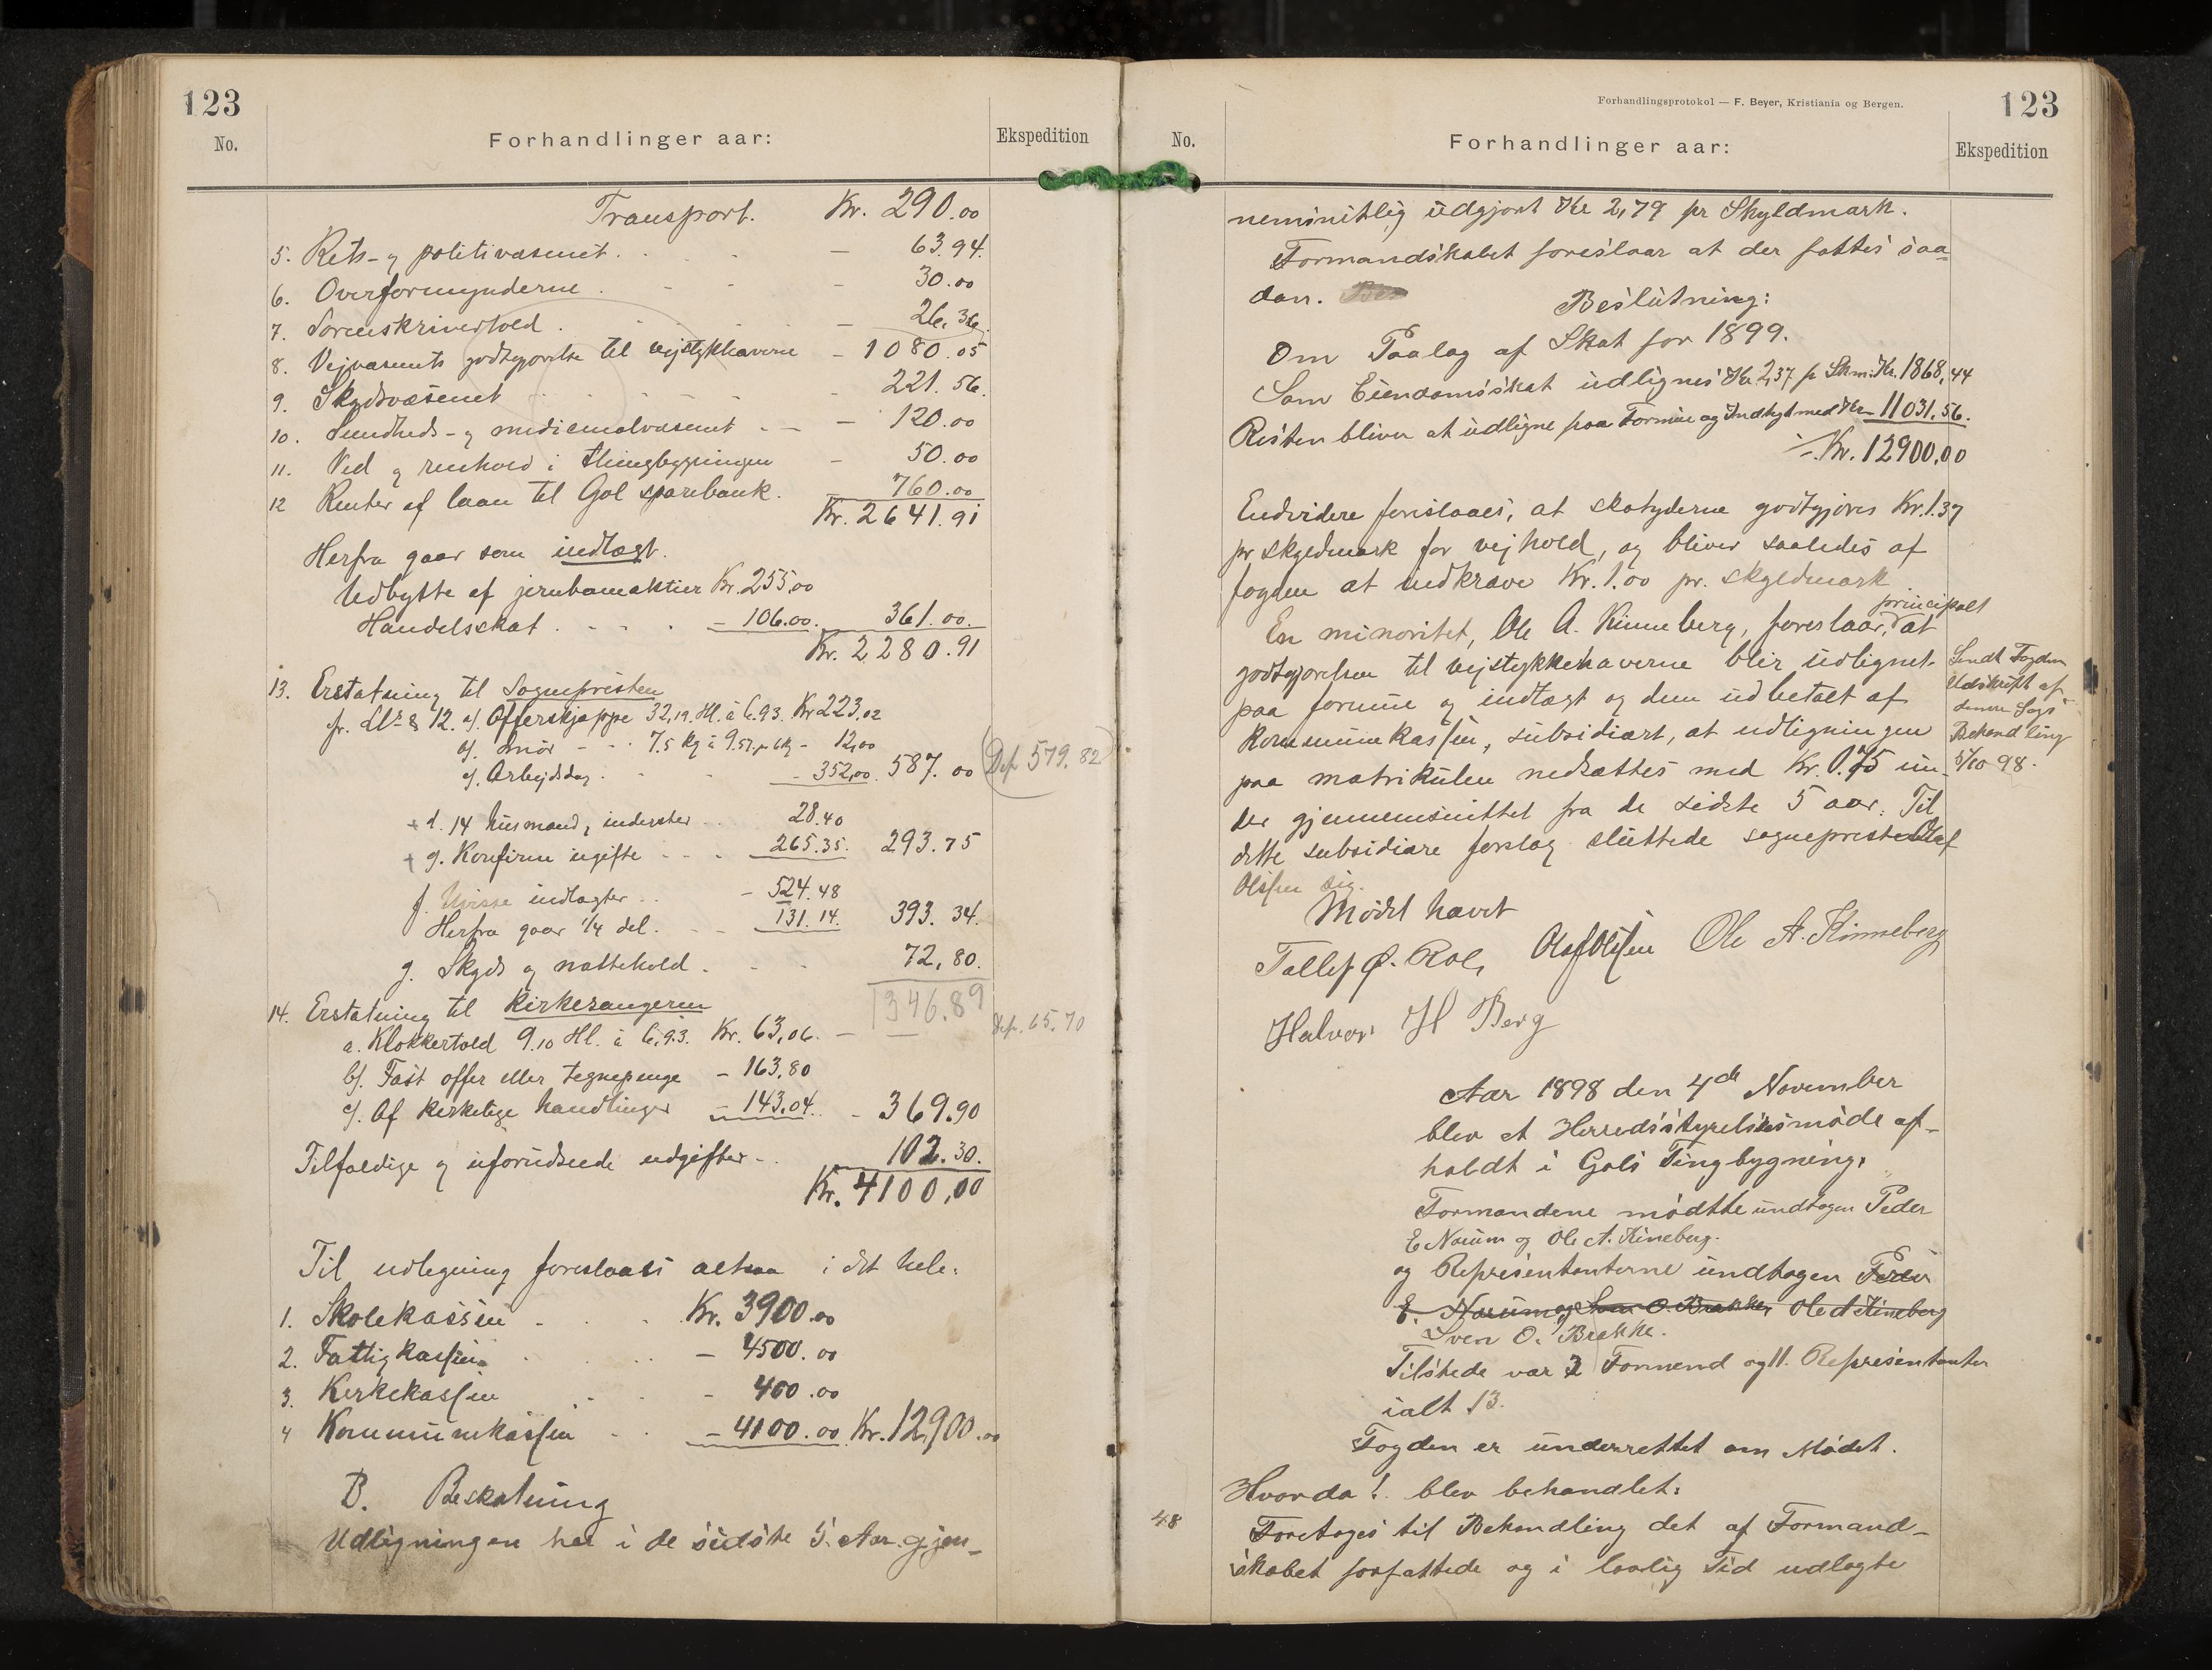 123
No.
Forhandlinger aar:
Ekspedition
Transport. Kr. 290.00
5. Rets- og politivæsenet. — 63.94.
6. Overformynderne. - 30.00
7. Sorenskrivertold. — 26.36.
8. Vejvæsenets godtgjørelse til vejstykkhaverne — 1080.05
9. Skydsvæsenet - 221.56.
10. Sundheds- og medicinalvæsenet - — 120.00
11. Ved og renhold i thingbygningen — 50.00
12 Renter af laan til Gol sparebank. 760.00
Kr. 2641.91
Herfra gaar som indtægt.
Udbytte af jernbaneaktier Kr. 255,00
Handelsskat. — 106.00. 361.00.
Kr. 2280.91
13. Erstatning til Sognepresten
a/. Offerskjæppe 32,19. Hl. à 6.93. Kr 223.02
b/. Smør - 7.5 kg à 12,00
c/. Arbejdsdag. - 352,00. 587.00
Def 579.82
d. 14 husmænd, inderster 28.40
Konfirm ugifte 265.35. 293.75
f. Uvisse indtægter - 524.48
Herfra gaar 1/4 del. 131.14. 393.34.
g. Skyds og nattehold. 72,80.
1346.89
14. Erstatning til Kirkesangeren
a. Klokkertold 9.10 Hl. à 6,93. Kr. 63,06. —
Def. 65.70
b/. Fast offer eller tegnepenge - 163,80
c/. Af kirkelige handlinger - 143,04. - 369.90
Tilfældige og uforudseede udgifter - 102.30.
Kr. 4100,00
Til udlegning foreslaaes altsaa i det hele:
1. Skolekassen Kr. 3900.00
2. Fattigkassen — 4500.00
3. Kirkekassen - 400.00
4 Kommunekassen - 4100.00 Kr. 12,900.00
B. Beskatning
Udligningen har i de sidste 5 Aar gjen-
Forhandlingsprotokol — F. Beyer, Kristiania og Bergen.
123
No.
Forhandlinger aar:
Ekspedition
nemsnitlig udgjort Kr 2,79 pr Skyldmark.
Formandskabet foreslaar at der fattes saa-
dan. Beslutning:
Om Paalag af Skat for 1899.
Som Eiendomsskat udlignes Kr 2,37 pr Skm. Kr. 1868,44
Resten bliver at udligne paa Formue og Indtægt med Kr — 11031.56.
Kr. 12900,00
Endvidere foreslaaes, at skatyderne godtgjøres Kr. 1.37
pr skyldmark for vejhold, og bliver saaledes af
fogden at indkræve Kr. 1.00 pr. skyldmark
En minoritet, Ole A. Kinneberg, foreslaar, principalt at
godtgjørelsen til vejstykkehaverne blir udlignet
paa formue og indtægt og dem udbetalt af
kommunekassen, subsidiært, at udligningen
paa matrikulen nedsættes med Kr. 0.75 un-
der gjennemsnittet fra de sidste 5 aar. Til
dette subsidiære forslag sluttede sogneprest Olaf
Olssen sig.
Sendt Fogden
Udskrift af
denne Sags
Behandling
5/10 98.
Mødet hævet
Olaf Olssen Ole A. Kinneberg
Halvor H Berg
Aar 1898 den 4de November
blev et Herredsstyrelsesmøde af-
holdt i Gols Tingbygning.
Formændene mødtte undtagen Peder
E Narum og Ole A. Kineberg.
og Representanterne undtagen Peder
E. Narum og Sven O. Brække, Ole A Kineberg
Sven O. Brække.
Tilstede var 2 Formend og 11. Representanter
ialt 13.
Fogden er underrettet om Mødet.
Hvorda! blev behandlet:
48
Foretages til Behandling det af Formand-
skabet forfattede og i lovlig Tid udlagte